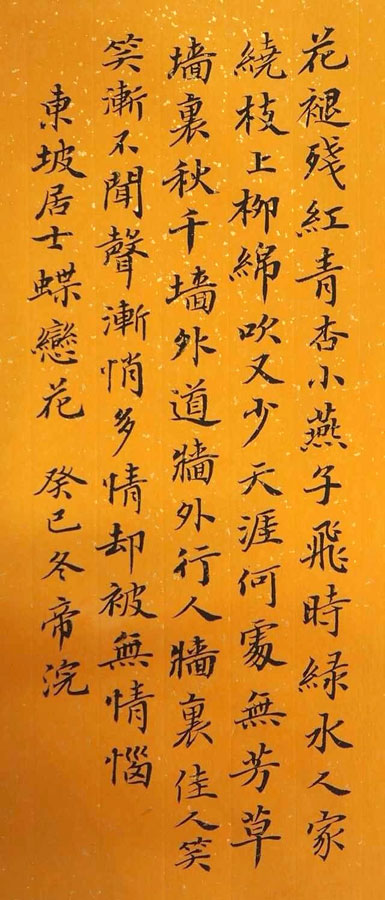 花褪残紅青杏小燕子飛時緑水人家
繞枝上柳綿吹又少天涯何處無芳草
墙裏秋千墙外道牆外行人牆裏佳人笑
笑漸不聞聲漸悄多情却被無情惱
東坡居士蝶戀花 癸巳冬帝浣